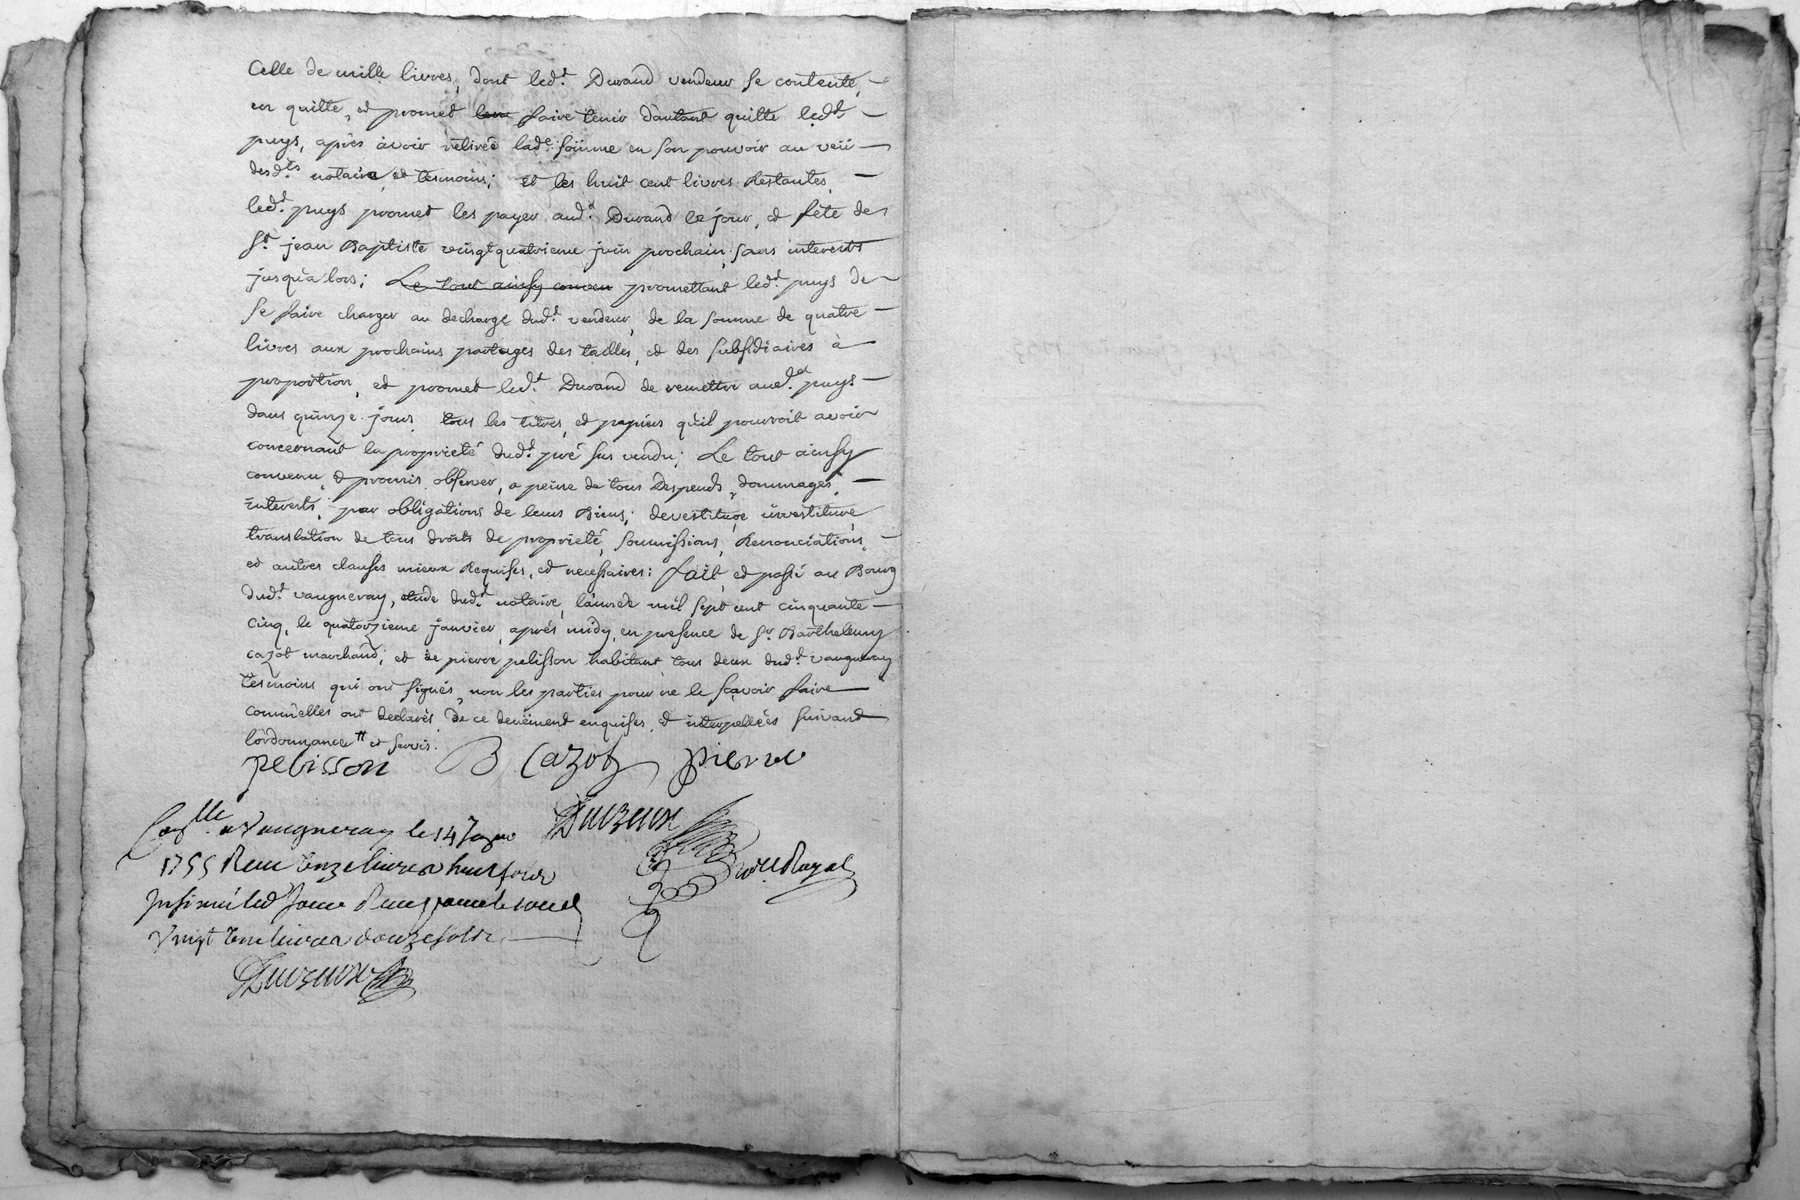 Celle de mille livres, dont led.t Durand vendeur se contente,
en quitte, et promet leur faire tenir d'autant quitte led.t
puys, après avoir retirée lad.e somme en son pouvoir au veü
desd.ts notaire, et tesmoins; et les huit cent livres Restantes,
led.t puys promet les payer aud.t Durand le jour, et fête de
S.t jean Baptiste vingtquatrieme juin prochain, sans interests
jusqu'a lors; Le tout ainsy convenu promettant led.t puys de
se faire charger au decharge dud.t vendeur, de la somme de quatre
livres aux prochains partages des tailles, et des subsidiaires à
proportion, et promet led.t Durand de remettre aud.t puys
dans quinze jours tous les titres, et papiers qu'il pourroit avoir
concernant la proprieté dud.t pré sus vendu; Le tout ainsy
convenu, et promis observer, a peine de tous Despends, dommages,
interests, par obligations de leurs Biens, devestiture, investiture,
translation de tous droits de proprieté, soumissions, Renonciations,
et autres clauses mieux Requises, et necessaires: fait, et passé au Bourg
dud.t vaugneray, etude dud.t notaire, l'année mil sept cent cinquante
cinq, le quatorzieme janvier, après midy, en presence de S.r Barthelemy
cazot marchand, et de pierre pelisson habitant tous deux dud.t vaugneray
tesmoins qui ont signés, non les parties pour ne le sçavoir faire
comm'elles ont declarés de ce deuëment enquises, et interpellées suivant
l'ordonnance et
pelisson B Cazot pierre
Duvzeux
No.re Royal
Con.lle a Vaugneray le 14 Janv.
1755 Receu onze livres huit sols
Insinué led Jour Receu
Vingt une livres douze sols
Duvzeux